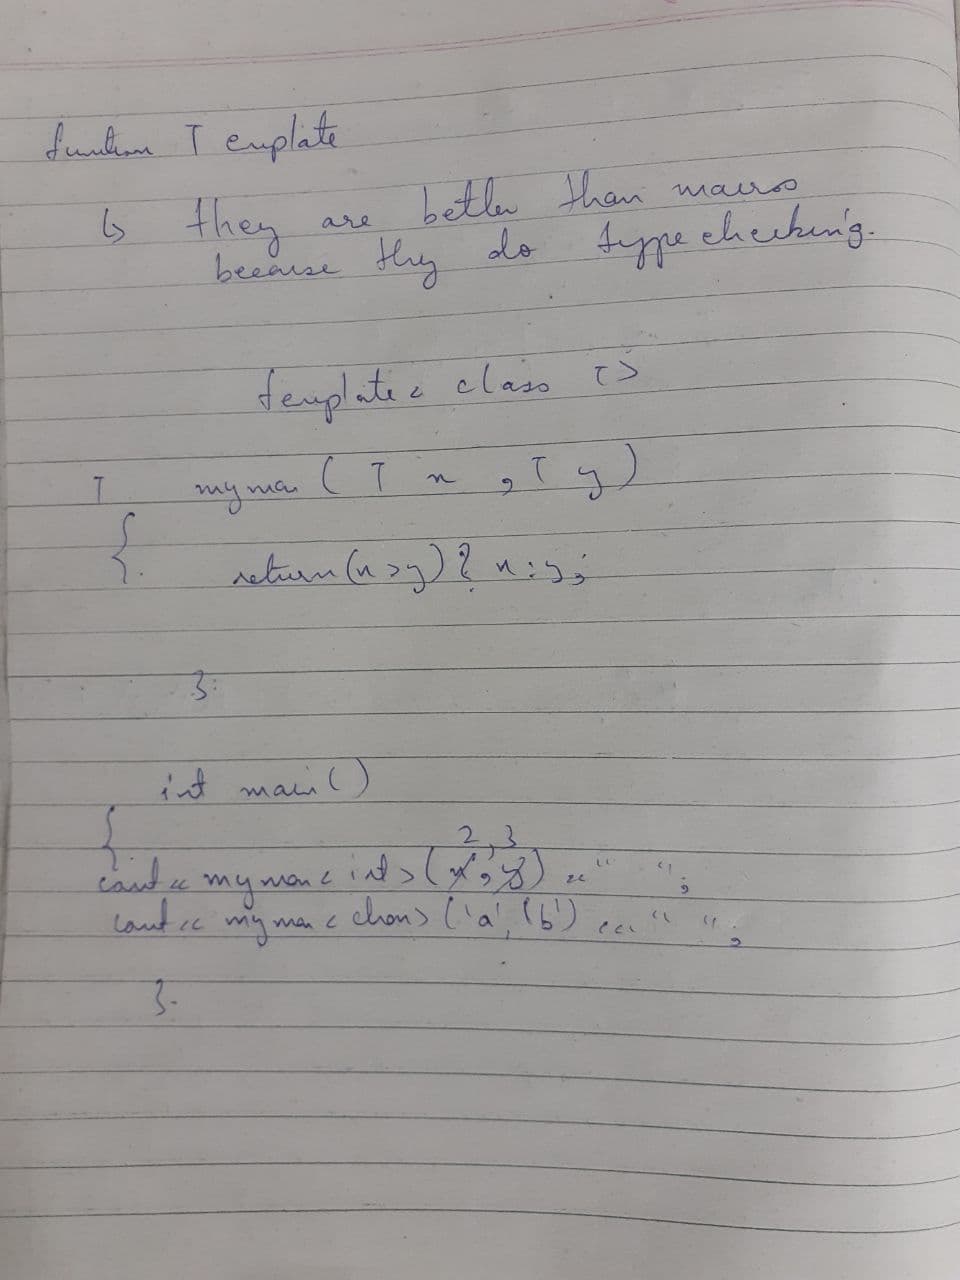 function Template
↳ they are better than macros
because they do type checking.
template < class T>
T mymax ( T x , T y )
{
return (x > y) ? x : y;
}
int main ( )
{
2, 3
cout << mymax < int > ( x , y ) << " " ;
cout << mymax < char > ( 'a', 'b' ) << " " ;
}